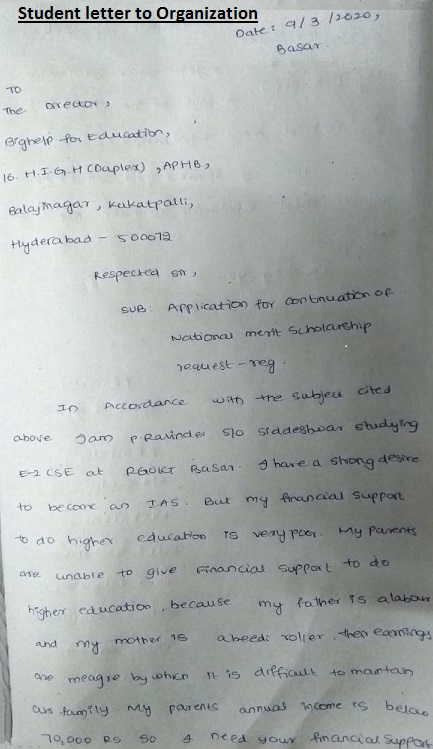 Student letter to Organization
Date: 9/3/2020,
Basar.
TO
The Director,
Bighelp for Education,
16. H.I.G.H (Duplex), APHB,
Balajinagar, Kukatpalli,
Hyderabad - 500072
Respected sir,
SUB: Application for continuation of
National merit Scholarship
request-reg.
In Accordance with the subject cited
above I am P.Ravinder S/o Siddeshwar studying
E-2 CSE at RGUKT Basar. I have a strong desire
to become an IAS. But my financial support
to do higher education is very poor. My Parents
are unable to give Financial Support to do
higher education, because my father is a labour
and my mother is a beedi roller. their earnings
are meagre by which it is difficult to maintain
our family My parents annual income is below
70,000 RS so I need your financial support